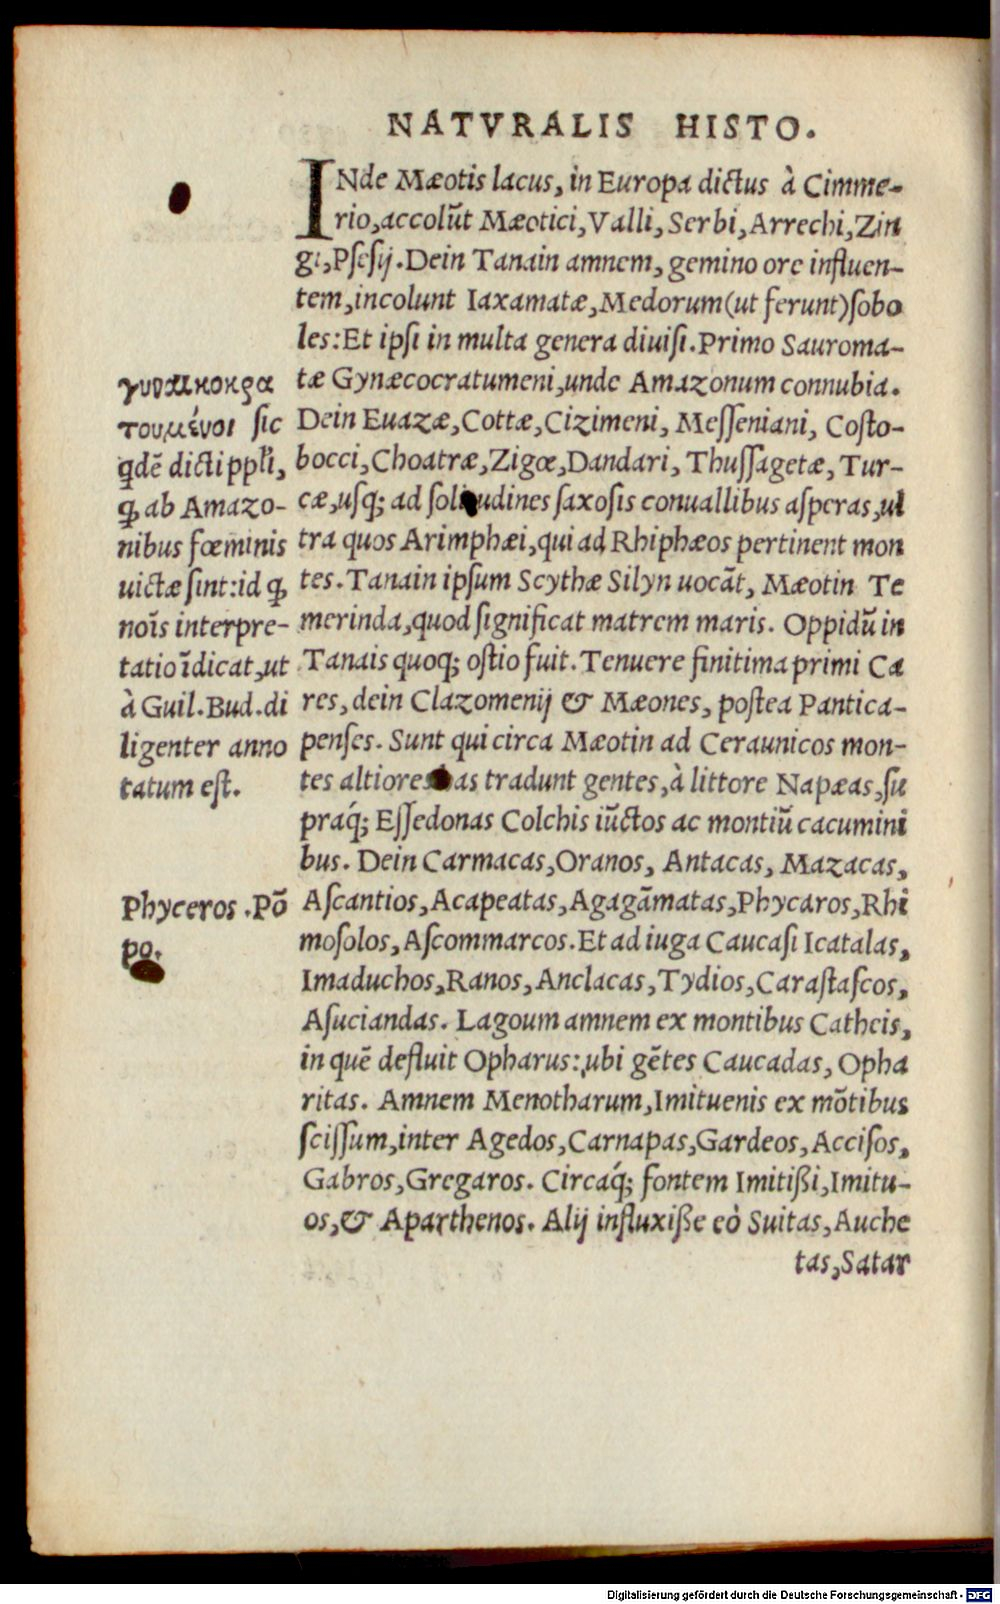 NATVRALIS HISTO.
INde Mæotis lacus, in Europa dictus à Cimme-
rio, accolũt Mæotici, Valli, Serbi, Arrechi, Zin
gi, Psesij. Dein Tanain amnem, gemino ore influen-
tem, incolunt Iaxamatæ, Medorum (ut ferunt) sobo
les: Et ipsi in multa genera diuisi. Primo Sauroma-
tæ Gynæcocratumeni, unde Amazonum connubia.
Dein Euazæ, Cottæ, Cizimeni, Messeniani, Costo-
bocci, Choatræ, Zigœ, Dandari, Thussagetæ, Tur-
cæ, usq; ad solitudines saxosis conuallibus asperas, ul
tra quos Arimphæi, qui ad Rhiphæos pertinent mon
tes. Tanain ipsum Scythæ Silyn uocãt, Mæotin Te
merinda, quod significat matrem maris. Oppidũ in
Tanais quoq; ostio fuit. Tenuere finitima primi Ca
res, dein Clazomenij & Mæones, postea Pantica-
penses. Sunt qui circa Mæotin ad Ceraunicos mon-
tes altiores has tradunt gentes, à littore Napæas, su
praq́; Essedonas Colchis iũctos ac montiũ cacumini
bus. Dein Carmacas, Oranos, Antacas, Mazacas,
Ascantios, Acapeatas, Agagãmatas, Phycaros, Rhi
mosolos, Ascommarcos. Et ad iuga Caucasi Icatalas,
Imaduchos, Ranos, Anclacas, Tydios, Carastascos,
Asuciandas. Lagoum amnem ex montibus Catheis,
in quẽ defluit Opharus: ubi gẽtes Caucadas, Opha
ritas. Amnem Menotharum, Imituenis ex mõtibus
scissum, inter Agedos, Carnapas, Gardeos, Accisos,
Gabros, Gregaros. Circaq́; fontem Imitißi, Imitu-
os, & Aparthenos. Alij influxiße eò Suitas, Auche
tas, Satar
γυναικοκρα
τουμένοι sic
qdẽ dicti ppłi,
ꝙ ab Amazo-
nibus fœminis
uictæ sint: id ꝙ
noĩs interpre-
tatio ĩdicat, ut
à Guil. Bud. di
ligenter anno
tatum est.
Phyceros. Põ
po.
Digitalisierung gefördert durch die Deutsche Forschungsgemeinschaft - DFG